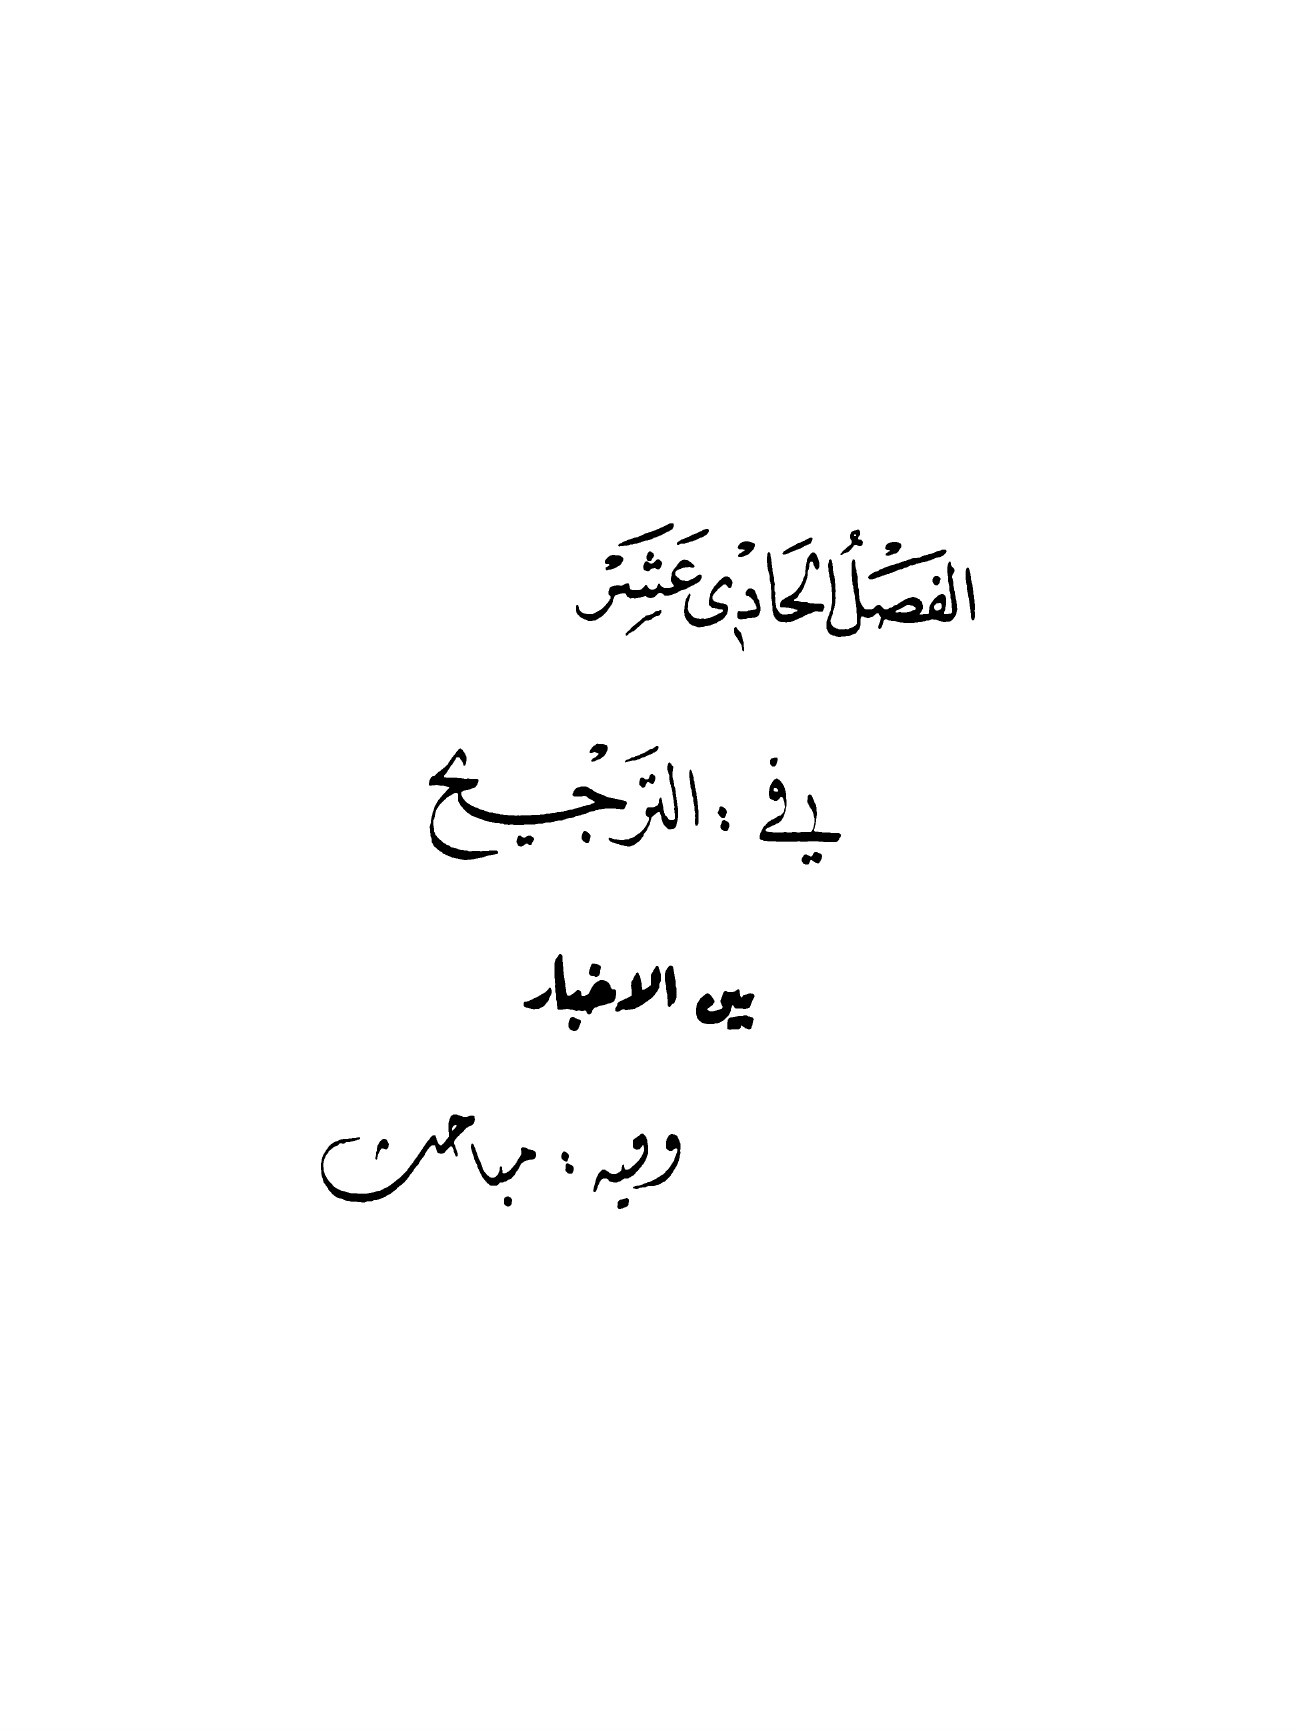 الفَصْلُ الحَادْی عَشَِرْ
في : التَرْجيح
بين الاخبار
وفيه : مباحث